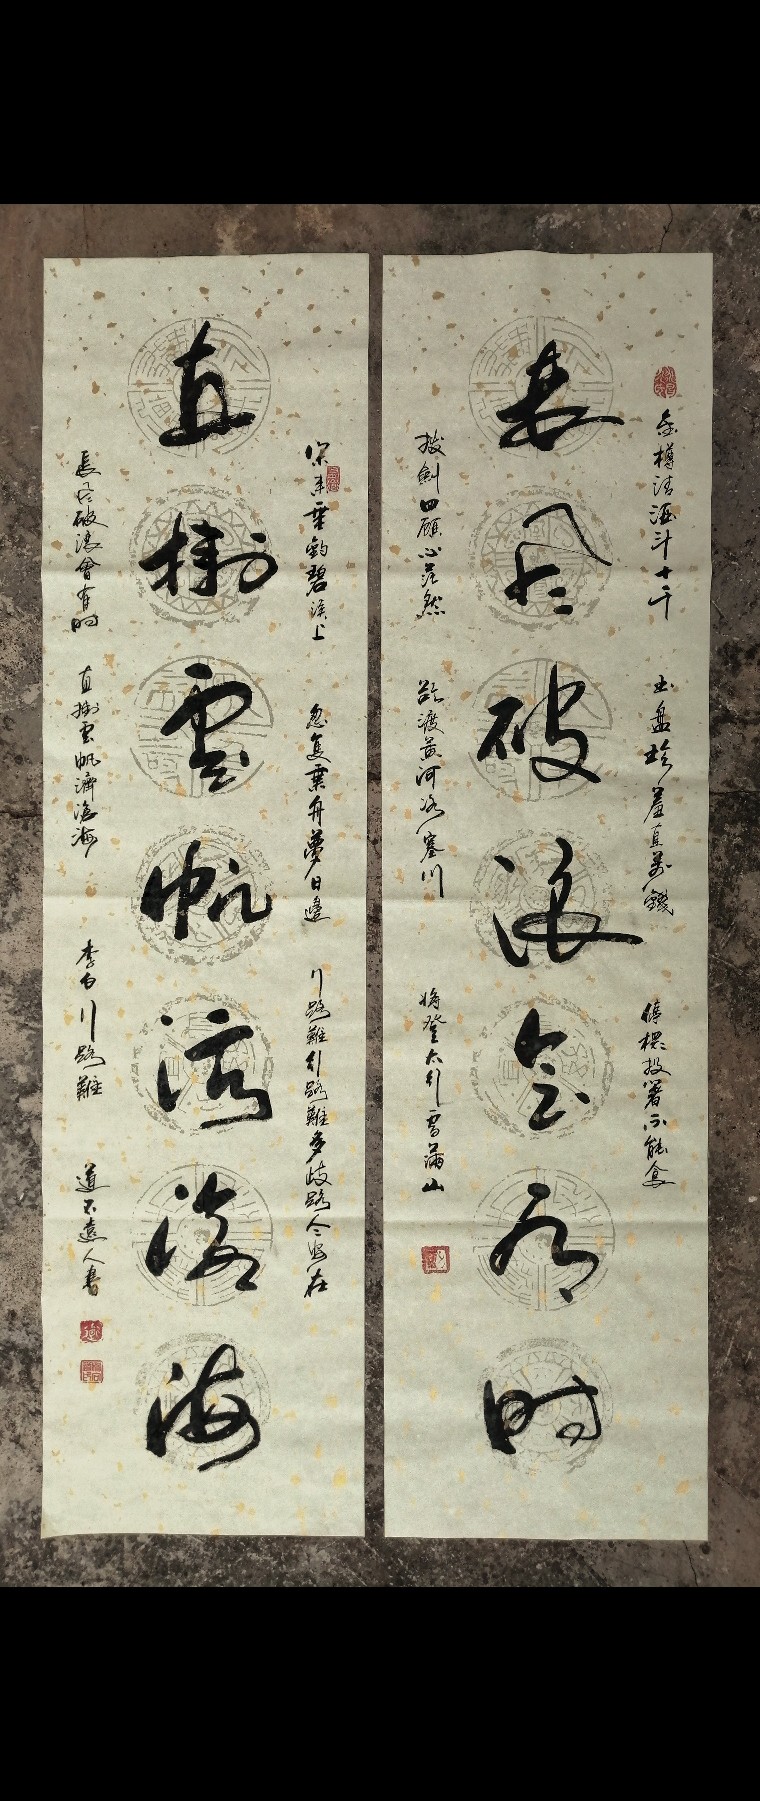 長风破浪会有时
金樽清酒斗十千 玉盘珍羞直萬錢 停杯投箸不能食
拔劍四顧心茫然 欲渡黄河冰塞川 將登太行雪满山
直掛雲帆济滄海
閑来垂釣碧溪上 忽復乗舟夢日邊 行路難行路難多歧路今安在
長风破浪會有时 直掛雲帆濟滄海 李白行路難 道不遠人書